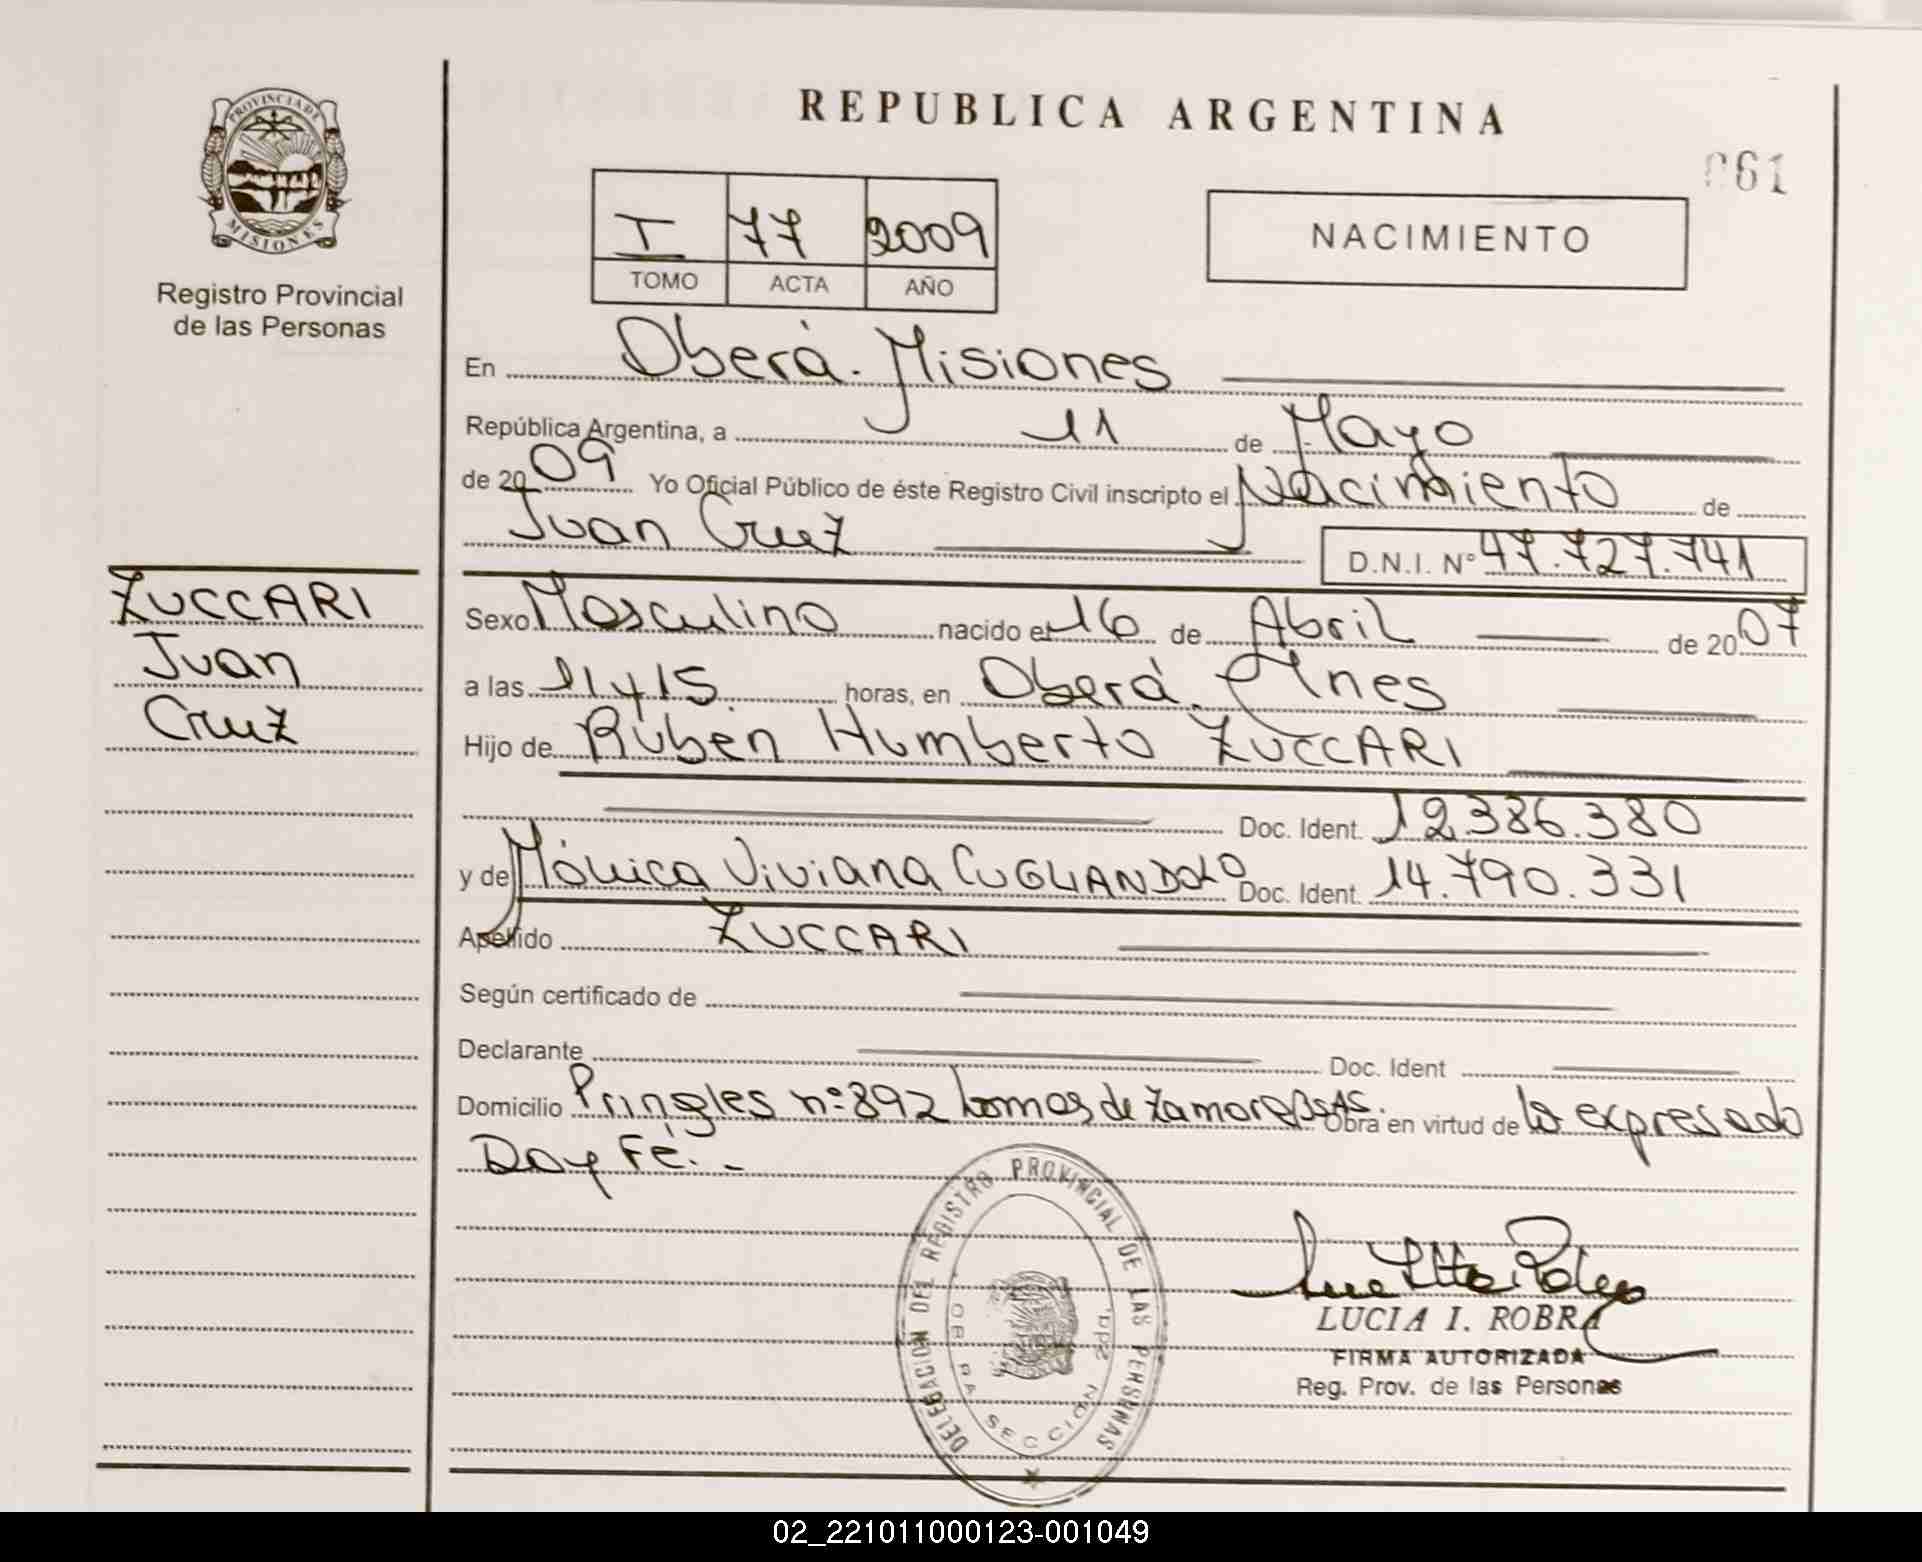 PROVINCIA DE
MISIONES
Registro Provincial
de las Personas
REPUBLICA ARGENTINA
061
I 77 2009
TOMO ACTA AÑO
NACIMIENTO
En Oberá. Misiones
República Argentina, a 11 de Mayo
de 2009 Yo Oficial Público de éste Registro Civil inscripto el Nacimiento de
Juan Cruz D.N.I. Nº 47.727.741
ZUCCARI
Juan
Cruz
Sexo Masculino nacido el 16 de Abril de 2007
a las 11y15 horas, en Oberá. Mnes
Hijo de Rubén Humberto ZUCCARI
Doc. Ident. 12.386.380
y de Mónica Viviana CUGLIANDOLO Doc. Ident. 14.790.331
Apellido ZUCCARI
Según certificado de
Declarante Doc. Ident
Domicilio Pringles nº 892 Lomas de Zamora BsAs. Obra en virtud de lo expresado
Doy Fé. -
DELEGACION DEL REGISTRO PROVINCIAL DE LAS PERSONAS
OBERA SECCION 2da.
LUCIA I. ROBRA
FIRMA AUTORIZADA
Reg. Prov. de las Personas
02_221011000123-001049